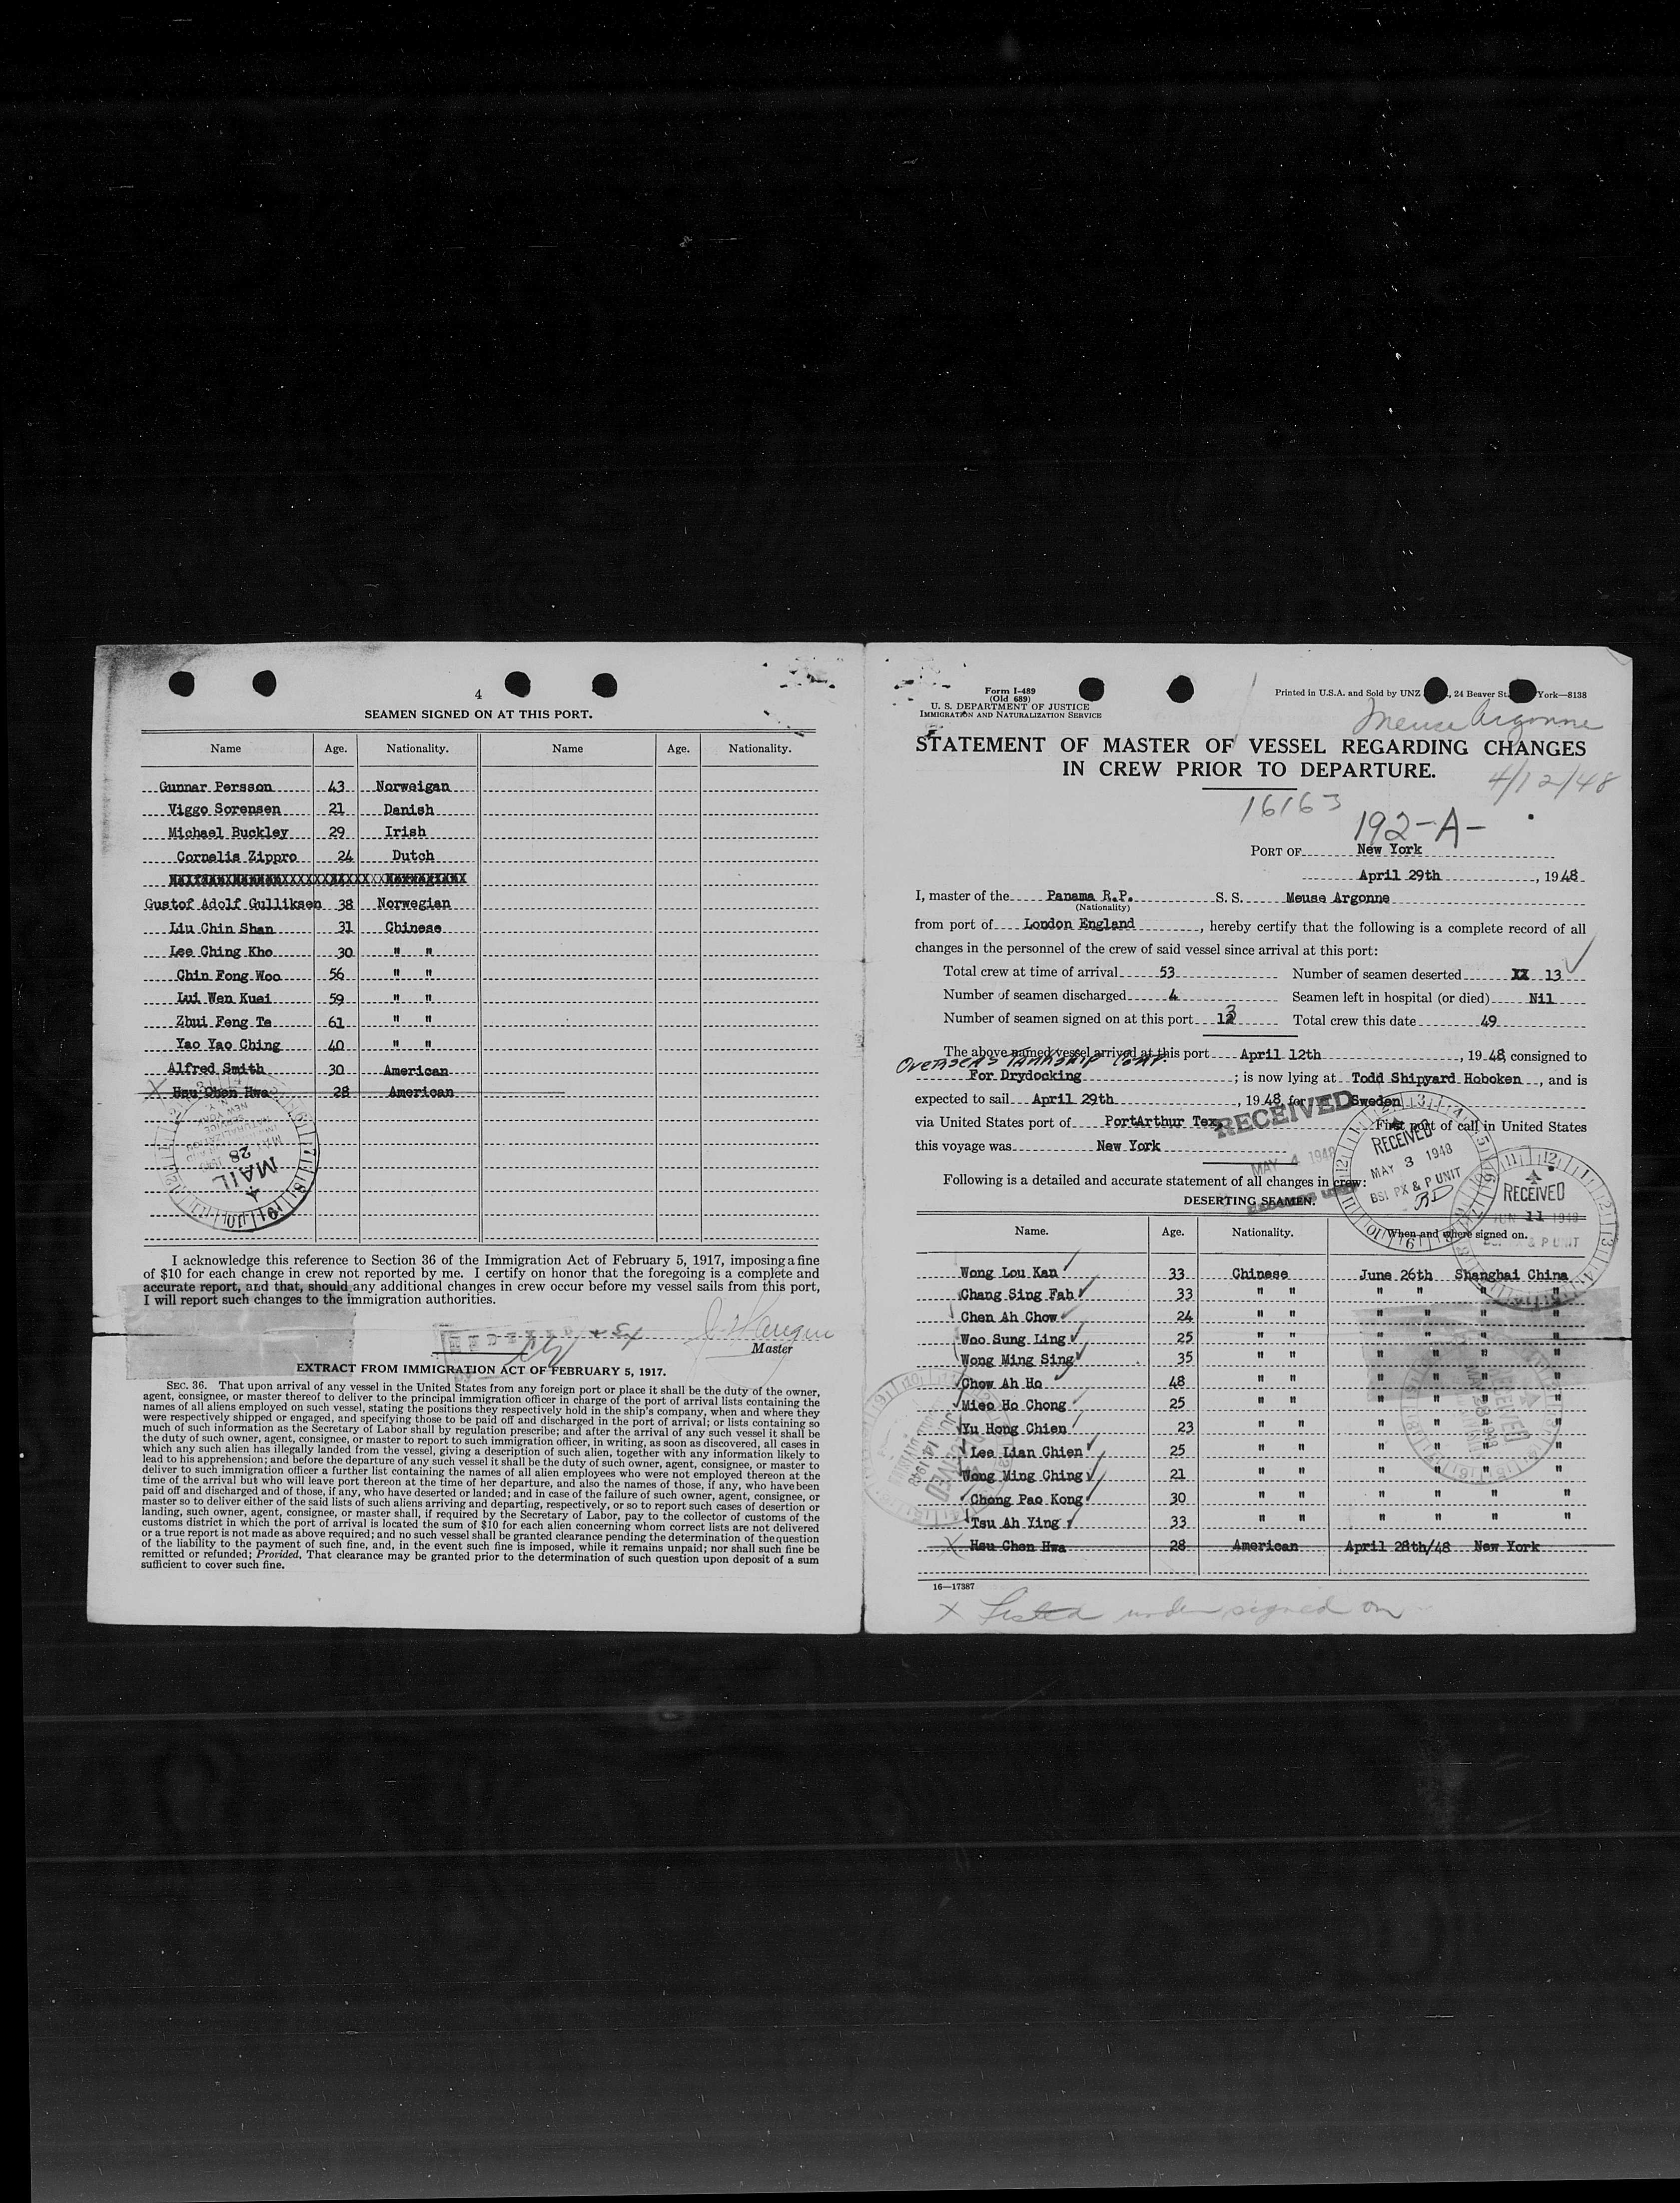 4
SEAMEN SIGNED ON AT THIS PORT.
Name Age. Nationality. Name Age. Nationality.
Gunnar Persson 43 Norweigan
Viggo Sorensen 21 Danish
Michael Buckley 29 Irish
Cornelis Zippro 24 Dutch
Gustof Adolf Gulliksen 38 Norwegian
Liu Chin Shan 31 Chinese
Lee Ching Kho 30 " "
Chin Fong Woo 56 " "
Lui Wen Kuei 59 " "
Zhui Feng Te 61 " "
Yao Yao Ching 40 " "
Alfred Smith 30 American
X Hsu Chen Hwa 28 American
MAIL
28
I acknowledge this reference to Section 36 of the Immigration Act of February 5, 1917, imposing a fine
of $10 for each change in crew not reported by me. I certify on honor that the foregoing is a complete and
accurate report, and that, should any additional changes in crew occur before my vessel sails from this port,
I will report such changes to the immigration authorities.
Master
EXTRACT FROM IMMIGRATION ACT OF FEBRUARY 5, 1917.
SEC. 36. That upon arrival of any vessel in the United States from any foreign port or place it shall be the duty of the owner,
agent, consignee, or master thereof to deliver to the principal immigration officer in charge of the port of arrival lists containing the
names of all aliens employed on such vessel, stating the positions they respectively hold in the ship's company, when and where they
were respectively shipped or engaged, and specifying those to be paid off and discharged in the port of arrival; or lists containing so
much of such information as the Secretary of Labor shall by regulation prescribe; and after the arrival of any such vessel it shall be
the duty of such owner, agent, consignee, or master to report to such immigration officer, in writing, as soon as discovered, all cases in
which any such alien has illegally landed from the vessel, giving a description of such alien, together with any information likely to
lead to his apprehension; and before the departure of any such vessel it shall be the duty of such owner, agent, consignee, or master to
deliver to such immigration officer a further list containing the names of all alien employees who were not employed thereon at the
time of the arrival but who will leave port thereon at the time of her departure, and also the names of those, if any, who have been
paid off and discharged and of those, if any, who have deserted or landed; and in case of the failure of such owner, agent, consignee, or
master so to deliver either of the said lists of such aliens arriving and departing, respectively, or so to report such cases of desertion or
landing, such owner, agent, consignee, or master shall, if required by the Secretary of Labor, pay to the collector of customs of the
customs district in which the port of arrival is located the sum of $10 for each alien concerning whom correct lists are not delivered
or a true report is not made as above required; and no such vessel shall be granted clearance pending the determination of the question
of the liability to the payment of such fine, and, in the event such fine is imposed, while it remains unpaid; nor shall such fine be
remitted or refunded; Provided, That clearance may be granted prior to the determination of such question upon deposit of a sum
sufficient to cover such fine.
Form I-489
(Old 689)
U. S. DEPARTMENT OF JUSTICE
IMMIGRATION AND NATURALIZATION SERVICE
Printed in U.S.A. and Sold by UNZ , 24 Beaver St. York—8138
Meuse Argonne
STATEMENT OF MASTER OF VESSEL REGARDING CHANGES
IN CREW PRIOR TO DEPARTURE.
4/12/48
16163
192-A-
PORT OF New York
April 29th, 1948
I, master of the Panama R.P. S. S. Meuse Argonne
(Nationality)
from port of London England, hereby certify that the following is a complete record of all
changes in the personnel of the crew of said vessel since arrival at this port:
Total crew at time of arrival 53 Number of seamen deserted XX 13
Number of seamen discharged 4 Seamen left in hospital (or died) Nil
Number of seamen signed on at this port 13 Total crew this date 49
The above named vessel arrived at this port April 12th, 1948, consigned to
Overseas Tankship Corp.
For Drydocking ; is now lying at Todd Shipyard Hoboken, and is
expected to sail April 29th, 1948, for Sweden
via United States port of PortArthur Tex. First port of call in United States
this voyage was New York
RECEIVED
MAY 4 1948
RECEIVED
MAY 3 1948
BSI PX & P UNIT
RECEIVED
JUN 11 1948
BSI PX & P UNIT
Following is a detailed and accurate statement of all changes in crew:
DESERTING SEAMEN.
Name. Age. Nationality. When and where signed on.
Wong Lou Kan 33 Chinese June 26th Shanghai China
Chang Sing Fah 33 " " " " " "
Chen Ah Chow 24 " " " " " "
Woo Sung Ling 25 " " " " " "
Wong Ming Sing 35 " " " " " "
Chow Ah Ho 48 " " " " " "
Miao Ho Chong 25 " " " " " "
Yu Hong Chien 23 " " " " " "
Lee Lian Chien 25 " " " " " "
Wong Ming Ching 21 " " " " " "
Chong Pao Kong 30 " " " " " "
Tsu Ah Ying 33 " " " " " "
X Hsu Chen Hwa 28 American April 28th/48 New York
16—17387
X Listed under signed on